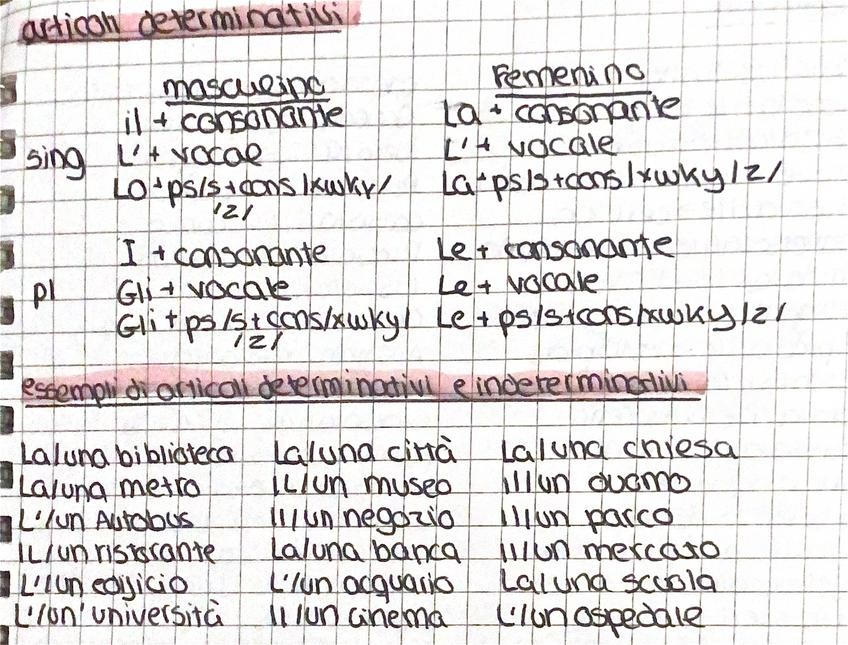 articoli determinativi
mascueino Femenino
il + consonante La + consonante
sing L' + vocae L' + vocale
LO + ps/s+cons/xwky/ La + ps/s+cons/xwky/z/
/z/
I + consonante Le + consonante
pl Gli + vocale Le + vocale
Gli + ps/s+cons/xwky/ Le + ps/s+cons/xwky/z/
/z/
essempli di articoli determinativi e indeterminativi
La/una biblioteca La/una città La/una chiesa
La/una metro IL/un museo Il/un duomo
L'/un Autobus Il/un negozio Il/un parco
IL/un ristorante La/una banca Il/un mercato
L'/un edificio L'/un acquario La/una scuola
L'/un' università Il/un cinema L'/un ospedale